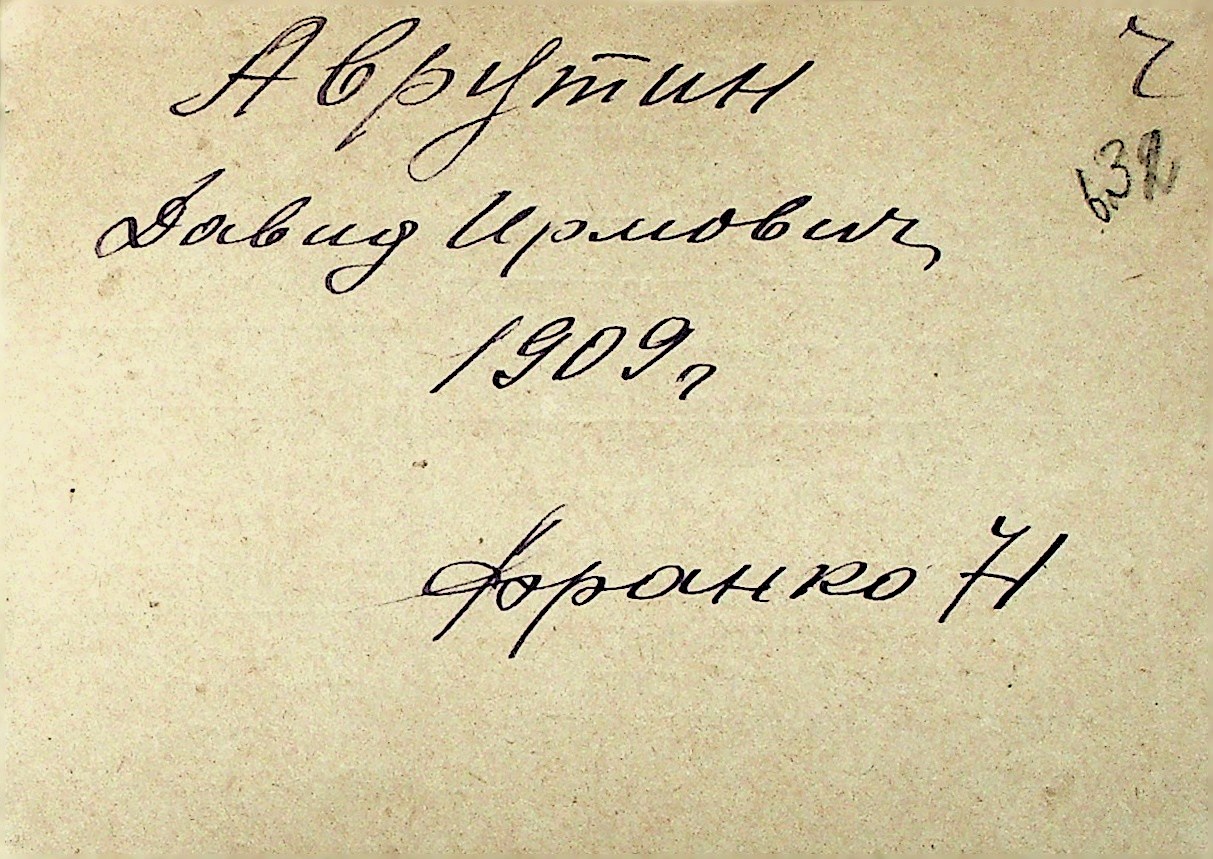 Аврутин
Давид Ирмович
1909г
Франко 71